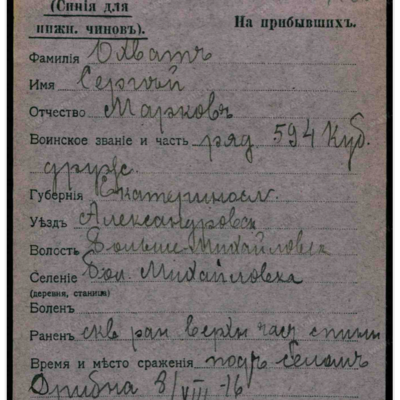 (Синія для
нижн. чиновъ).
На прибывшихъ.
Фамилія Охватъ
Имя Сергѣй
Отчество Марковъ
Воинское званіе и часть ряд 594 Куб.
друж.
Губернія Екатериносл.
Уѣздъ Александровск
Волость Больше-Михайловск
Селеніе Бол. Михайловка
(деревня, станица)
Боленъ
Раненъ скв ран верхн част спины
Время и мѣсто сраженія подъ
8/VIII - 16